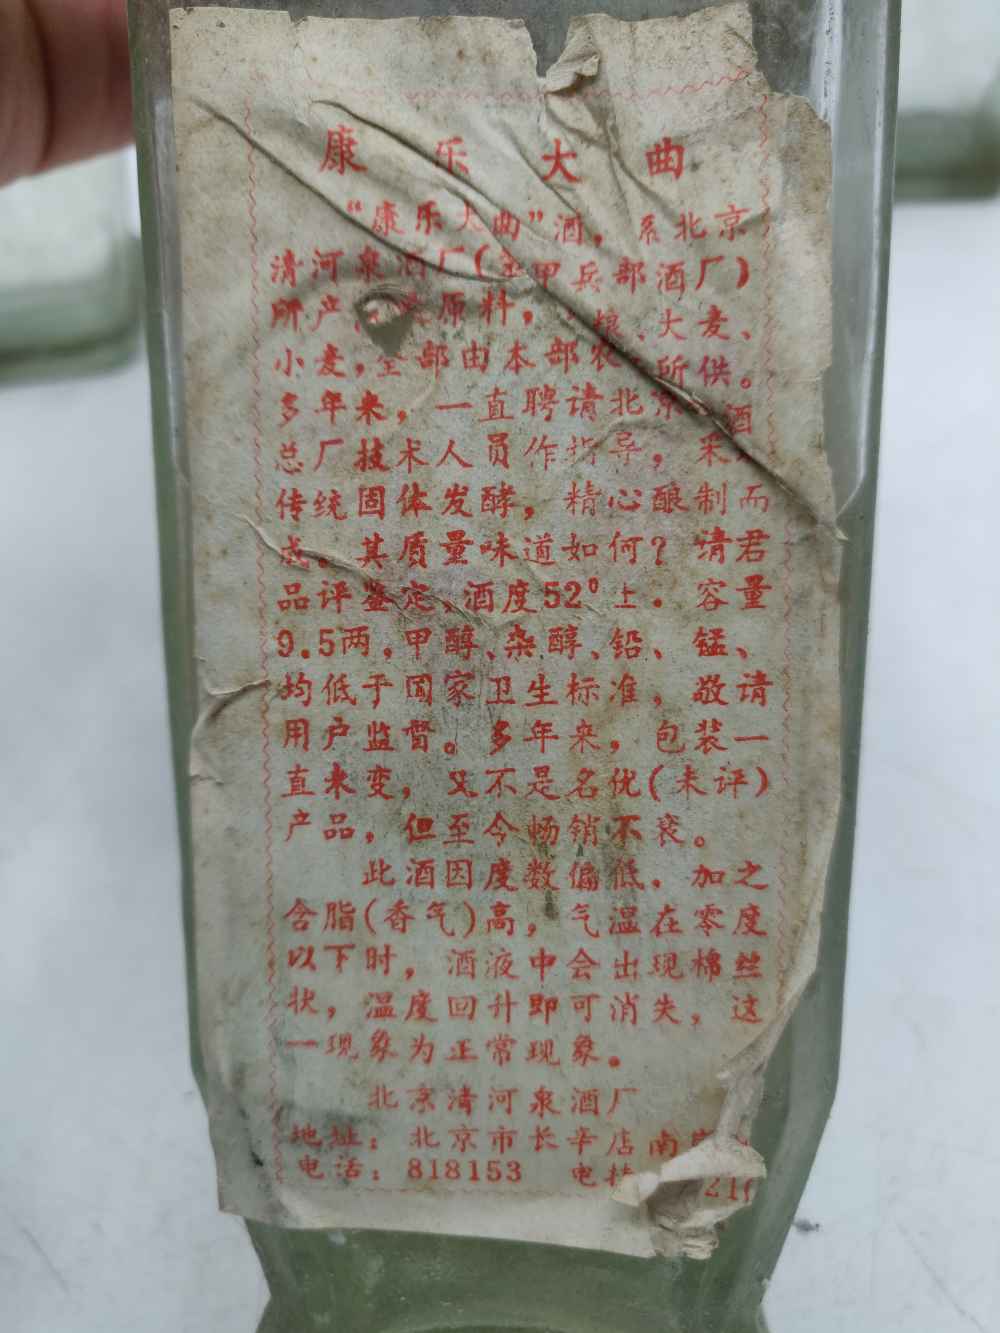 康乐大曲
“康乐大曲”酒，系北京
清河泉酒厂(装甲兵部酒厂)
所产 原料， 粮、大麦、
小麦，全部由本部农 所供。
多年来，一直聘请北京 酒
总厂技术人员作指导，采
传统固体发酵，精心酿制而
成。其质量味道如何？请君
品评鉴定，酒度52⁰±．容量
9.5两，甲醇、杂醇、铅、锰、
均低于国家卫生标准，敬请
用户监督。多年来，包装一
直未变，又不是名优(未评)
产品，但至今畅销不衰。
此酒因度数偏低．加之
含脂(香气)高，气温在零度
以下时，酒液中会出现棉丝
状，温度回升即可消失，这
一现象为正常现象。
北京清河泉酒厂
地址：北京市长辛店南
电话：818153 电挂 21